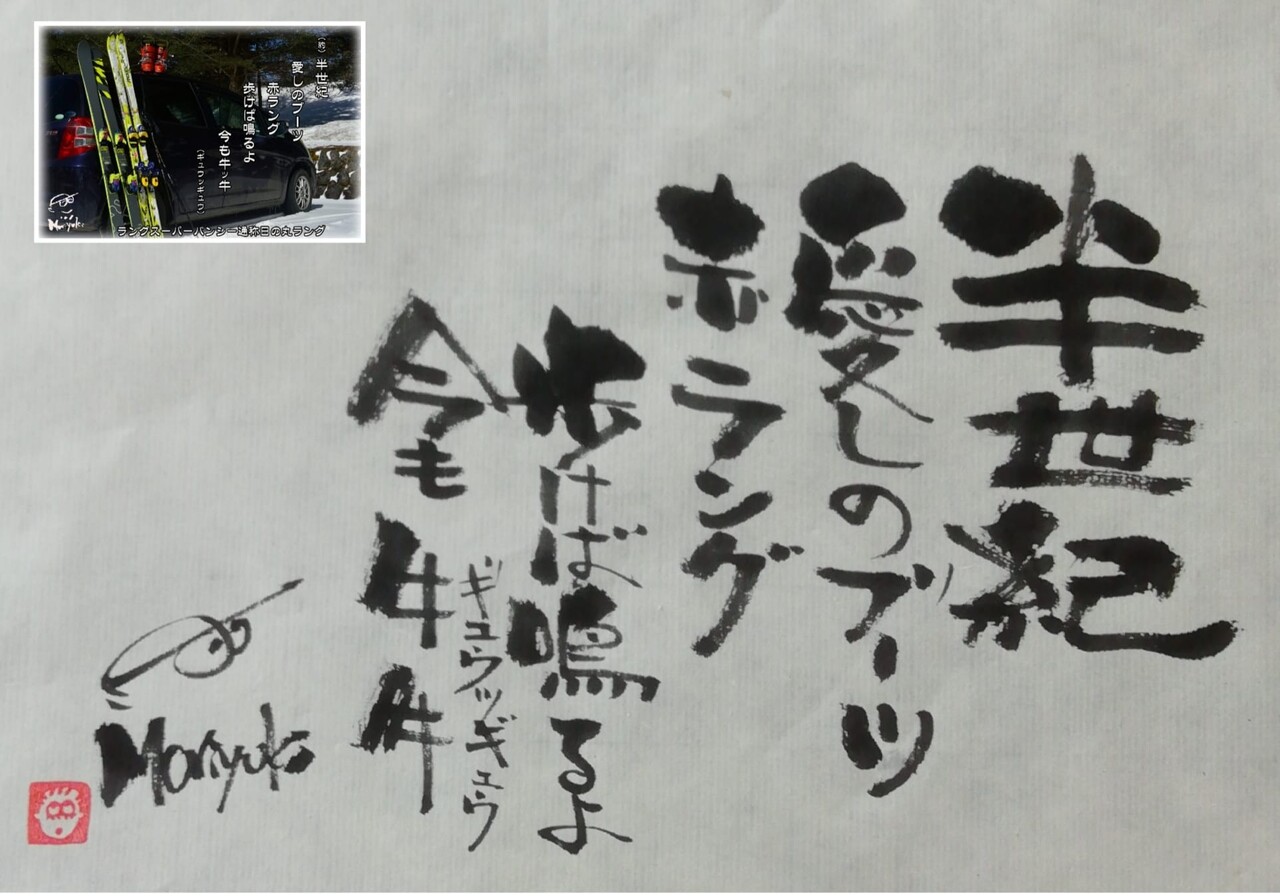 半世紀
愛しのブーツ
赤ラング
歩けば鳴るよ
ギュウッギュウ
今も牛牛
Moriyuki
（約）半世紀
愛しのブーツ
赤ラング
歩けば鳴るよ
今も牛ッ牛
（ギュウッギュウ）
Moriyuki
ラングスーパーバンジー通称日の丸ラング